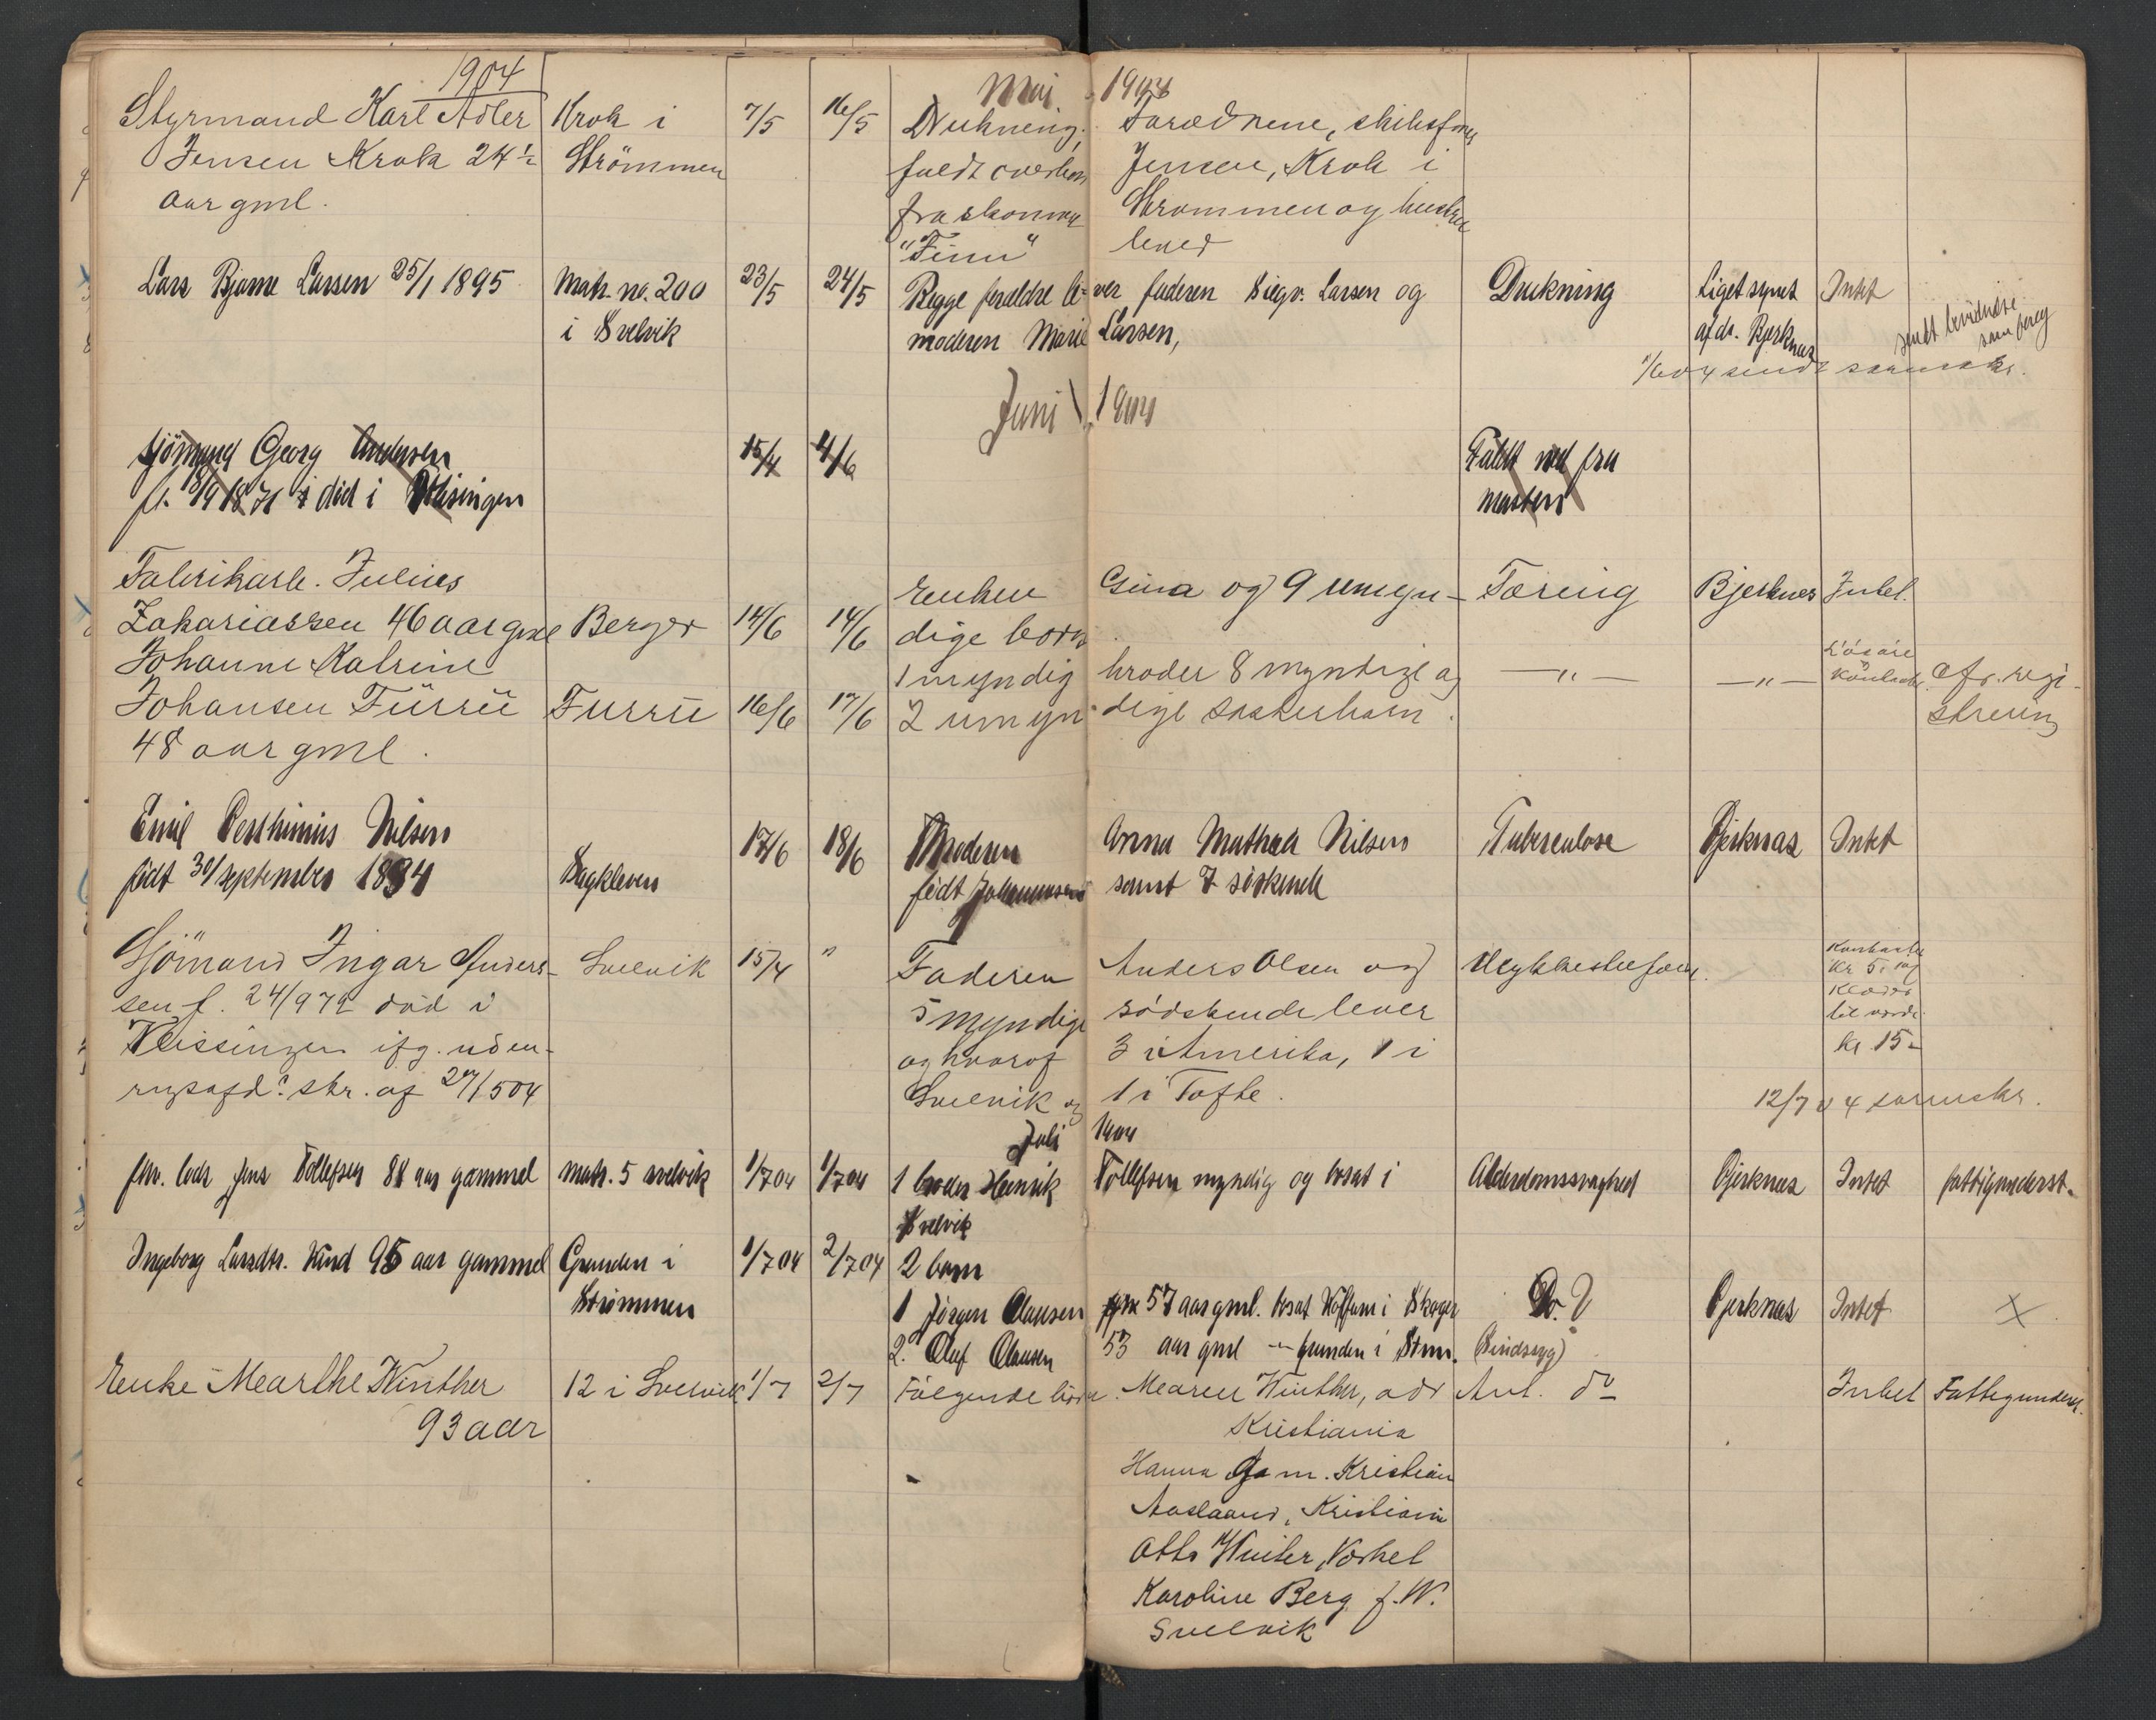 1904
Mai 1904
Styrmand Karl Adler Krok i 7/5 16/5 Drukning, Forældrene, skibsfører
Jensen Krok 24 1/2 Strömmen faldt overbord Jensen, Krok i
aar gml. fra skonnert Strømmen og hustru
"Finn" lever
Lars Bjarne Larsen 25/1 1895 Matr. no. 200 23/5 24/5 Begge forældre le- ver faderen Sigv. Larsen og Drukning Liget synet Intet
i Svelvik moderen Marie Larsen, af dr. Bjerknæs sendt
1/6 04 sendt
Juni 1904
Sjömand Georg Andersen 15/4 4/6 Faldt ned fra
f. 18/9 1871 död i Vlissingen masten
Fabrikarb. Julius Enken Gina og 9 umyn- Tæring Bjerknes Intet.
Zakariassen 46 aar gml Berger 14/6 14/6 dige børn
Johanne Katrine 1 myndig broder 8 myndige og —„— —„— cfr. regi-
Johansen Furru Furru 16/6 17/6 2 umyn- dige søskerbørn. strering
48 aar gml.
Emil Nilsen 17/6 18/6 Moderen Anna Mathea Nilsen Tuberculose Bjerknæs Intet
födt 30/september 1884 Bagkleven födt Johannesen samt 7 söskende
Sjömand Ingar Anders- Svelvik 15/4 " Faderen Anders Olsen og Ulykkestilfælde. Kontanter
sen f. 24/9 72 död i 5 myndige södskende lever kr 5.
Vlissingen ifg. uden- og hvoraf 3 i Amerika, 1 i Klæder
rigsafd. skr. af 27/5 04 Svelvik og 1 i Tofte. til værdi
kr 15.-
12/7 04
Juli 1904
fhv. lods Jens Tollefsen 81 aar gammel matr. 5 svelvik 1/7 04 1/7 04 1 broder Henrik Tollefsen myndig og bosat i Alderdomssvaghed Bjerknæs Intet fattigunderst.
Svelvik
Ingeborg Larsdtr. Kind 95 aar gammel Grunden i 1/7 04 2/7 04 2 barn
Strömmen 1 Jörgen Olausen 57 aar gml. bosat i Skoger Do. Bjerknæs Intet X
2. Oluf Olausen 53 aar gml —"— grunden i Strm. (Sindssyg)
Enke Marthe Winther 12 i Svelvik 1/7 2/7 Følgende børn. Maren Winther, adr Anl. do Intet Fattigunderst.
93 aar Kristiania
Hanna Kristian
Aaslaand, Kristiania
Otto Winther,
Karoline Berg f. W.
Svelvik